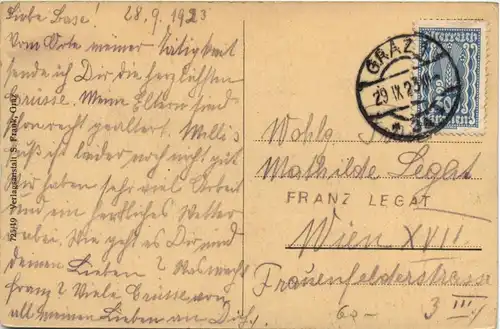 Liebe Base! 28.9.1923
Vom Orte meiner Tätigkeit
sende ich Dir die herzlichsten
Grüsse. Meine Eltern sind
schon recht gealtert. Willi's
ist leider noch nicht gut
Wir haben sehr viel Arbeit
und ein herrliches Wetter
dabei. Wie geht es Dir und
deinen Lieben? Was macht
Franz? Viele Grüsse von
all meinen Lieben an Dich
72949 Verlagsanstalt S. Frank, Graz
GRAZ
29.IX.23
Österreich
Wohlg
Mathilde Legat
FRANZ LEGAT
Wien XVII
Frauenfelderstrasse
60- 3 III